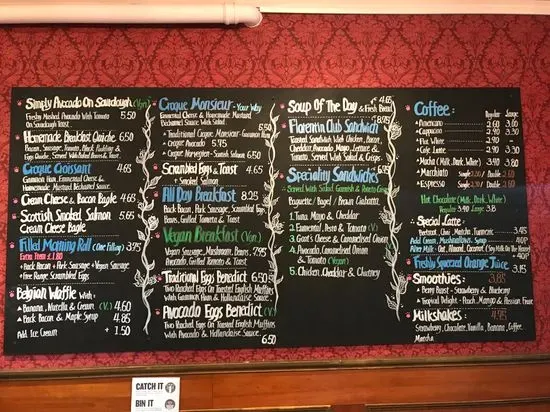 Simply Avocado On Sourdough (Vgn)
Freshly Mashed Avocado With Tomato
On Sourdough Toast 5.50
Homemade Breakfast Quiche 5.50
Bacon, Sausage, Tomato, Black Pudding &
Eggs Quiche, Served With Baked Beans & Toast.
Croque Croissant
Gammon Ham, Emmental Cheese &
Homemade Mustard Béchamel Sauce. 5.50
Cream Cheese & Bacon Bagle 4.65
Scottish Smoked Salmon
Cream Cheese Bagle 5.65
Filled Morning Roll (One Filling) 3.75
Extra Item £1.80
Back Bacon • Pork Sausage • Vegan Sausage
Free Range Scrambled Eggs
Belgian Waffle With:
Banana, Nutella & Cream (V.) 4.60
Back Bacon & Maple Syrup 4.85
Add Ice Cream + 1.50
Croque Monsieur - Your Way
Emmental Cheese & Homemade Mustard
Béchamel Sauce With Salad 6.50
Traditional Croque Monsieur - Gammon Ham
Croque Avocado 5.75
Croque Norvegien - Scottish Salmon 6.50
Scrambled Eggs & Toast 4.85
+ Smoked Salmon
All Day Breakfast 8.25
Back Bacon, Pork Sausage, Scrambled Eggs
Beans, Grilled Tomato & Toast
Vegan Breakfast (Vgn.)
Vegan Sausage, Mushroom, Beans, 7.95
Grilled Tomato & Toast
Traditional Eggs Benedict 6.50
Two Poached Eggs On Toasted English Muffins
With Gammon Ham & Hollandaise Sauce
Avocado Eggs Benedict (V)
Two Poached Eggs On Toasted English Muffins
With Avocado & Hollandaise Sauce. 6.50
Soup Of The Day 4.65
& Fresh Bread
Florentin Club Sandwich
Toasted Sandwich With Chicken, Bacon,
Cheddar, Avocado, Mayo, Lettuce &
Tomato, Served With Salad & Crisps.
Speciality Sandwiches
Served With Salad Garnish & Potato Crisps
Baguette / Bagel / Brown Ciabatta
1. Tuna, Mayo & Cheddar
2. Emmental, Pesto & Tomato (V)
3. Goat's Cheese & Caramelised Onion
4. Avocado, Caramelised Onion
& Tomato (Vegan)
5. Chicken, Cheddar & Chutney
Coffee: Regular Large
Americano 2.60 3.00
Cappuccino 2.80 3.30
Flat White 2.80
Cafe Latte 2.80 3.30
Mocha (Milk, Dark, White) 3.40 3.80
Macchiato Single 2.30 Double 2.60
Espresso Single 2.30 Double 2.60
Hot Chocolate (Milk, Dark, White)
Regular 3.40 Large 3.8
Special Latte:
Beetroot, Chai, Matcha, Turmeric
Add Cream, Mashmallows, Syrup 40P
Alter Milk: Oat, Almond, Coconut, (Soy Milk On The House) 40P
Freshly Squeezed Orange Juice 3.15
Smoothies: 3.85
Berry Boost - Strawberry & Blueberry
Tropical Delight - Peach, Mango & Passion Fruit
Milkshakes: 4.75
Strawberry, Chocolate, Vanilla, Banana, Coffee
Matcha
CATCH IT
BIN IT